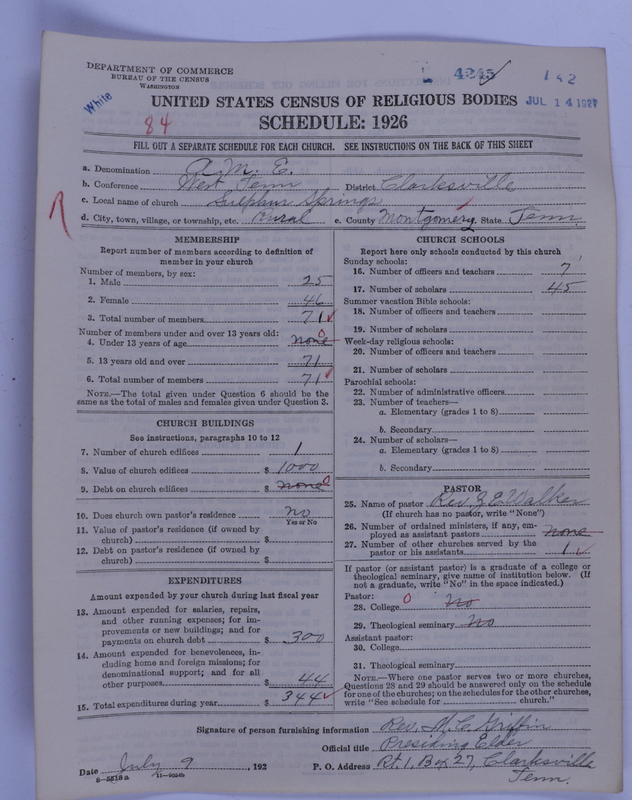 DEPARTMENT OF COMMERCE
BUREAU OF THE CENSUS
WASHINGTON
4245
142
White
84
UNITED STATES CENSUS OF RELIGIOUS BODIES
JUL 14 1927
SCHEDULE: 1926
FILL OUT A SEPARATE SCHEDULE FOR EACH CHURCH. SEE INSTRUCTIONS ON THE BACK OF THIS SHEET
a. Denomination A. M. E.
b. Conference West Tenn District Clarksville
c. Local name of church Sulphur Springs
d. City, town, village, or township, etc. Rural e. County Montgomery State Tenn.
MEMBERSHIP
Report number of members according to definition of
member in your church
Number of members, by sex:
1. Male 25
2. Female 46
3. Total number of members 71
Number of members under and over 13 years old:
4. Under 13 years of age none 0
5. 13 years old and over 71
6. Total number of members 71
NOTE.—The total given under Question 6 should be the
same as the total of males and females given under Question 3.
CHURCH BUILDINGS
See instructions, paragraphs 10 to 12
7. Number of church edifices 1
8. Value of church edifices $ 1000
9. Debt on church edifices $ none 0
10. Does church own pastor's residence no
Yes or No
11. Value of pastor's residence (if owned by
church) $
12. Debt on pastor's residence (if owned by
church) $
EXPENDITURES
Amount expended by your church during last fiscal year
13. Amount expended for salaries, repairs,
and other running expenses; for im-
provements or new buildings; and for
payments on church debt $ 300
14. Amount expended for benevolences, in-
cluding home and foreign missions; for
denominational support; and for all
other purposes $ 44
15. Total expenditures during year $ 344
CHURCH SCHOOLS
Report here only schools conducted by this church
Sunday schools:
16. Number of officers and teachers 7
17. Number of scholars 45
Summer vacation Bible schools:
18. Number of officers and teachers
19. Number of scholars
Week-day religious schools:
20. Number of officers and teachers
21. Number of scholars
Parochial schools:
22. Number of administrative officers
23. Number of teachers—
a. Elementary (grades 1 to 8)
b. Secondary
24. Number of scholars—
a. Elementary (grades 1 to 8)
b. Secondary
PASTOR
25. Name of pastor Rev. G E Walker
(If church has no pastor, write "None")
26. Number of ordained ministers, if any, em-
ployed as assistant pastors none
27. Number of other churches served by the
pastor or his assistants 1
If pastor (or assistant pastor) is a graduate of a college or
theological seminary, give name of institution below. (If
not a graduate, write "No" in the space indicated.)
Pastor:
28. College 0 No
29. Theological seminary No
Assistant pastor:
30. College
31. Theological seminary
NOTE.—Where one pastor serves two or more churches,
Questions 28 and 29 should be answered only on the schedule
for one of the churches; on the schedules for the other churches,
write "See schedule for church."
Signature of person furnishing information Rev. M. C. Griffin
Official title Presiding Elder
Date July 9, 192 P. O. Address Rt. 1, Box 27, Clarksville
Tenn.
8-5518 a